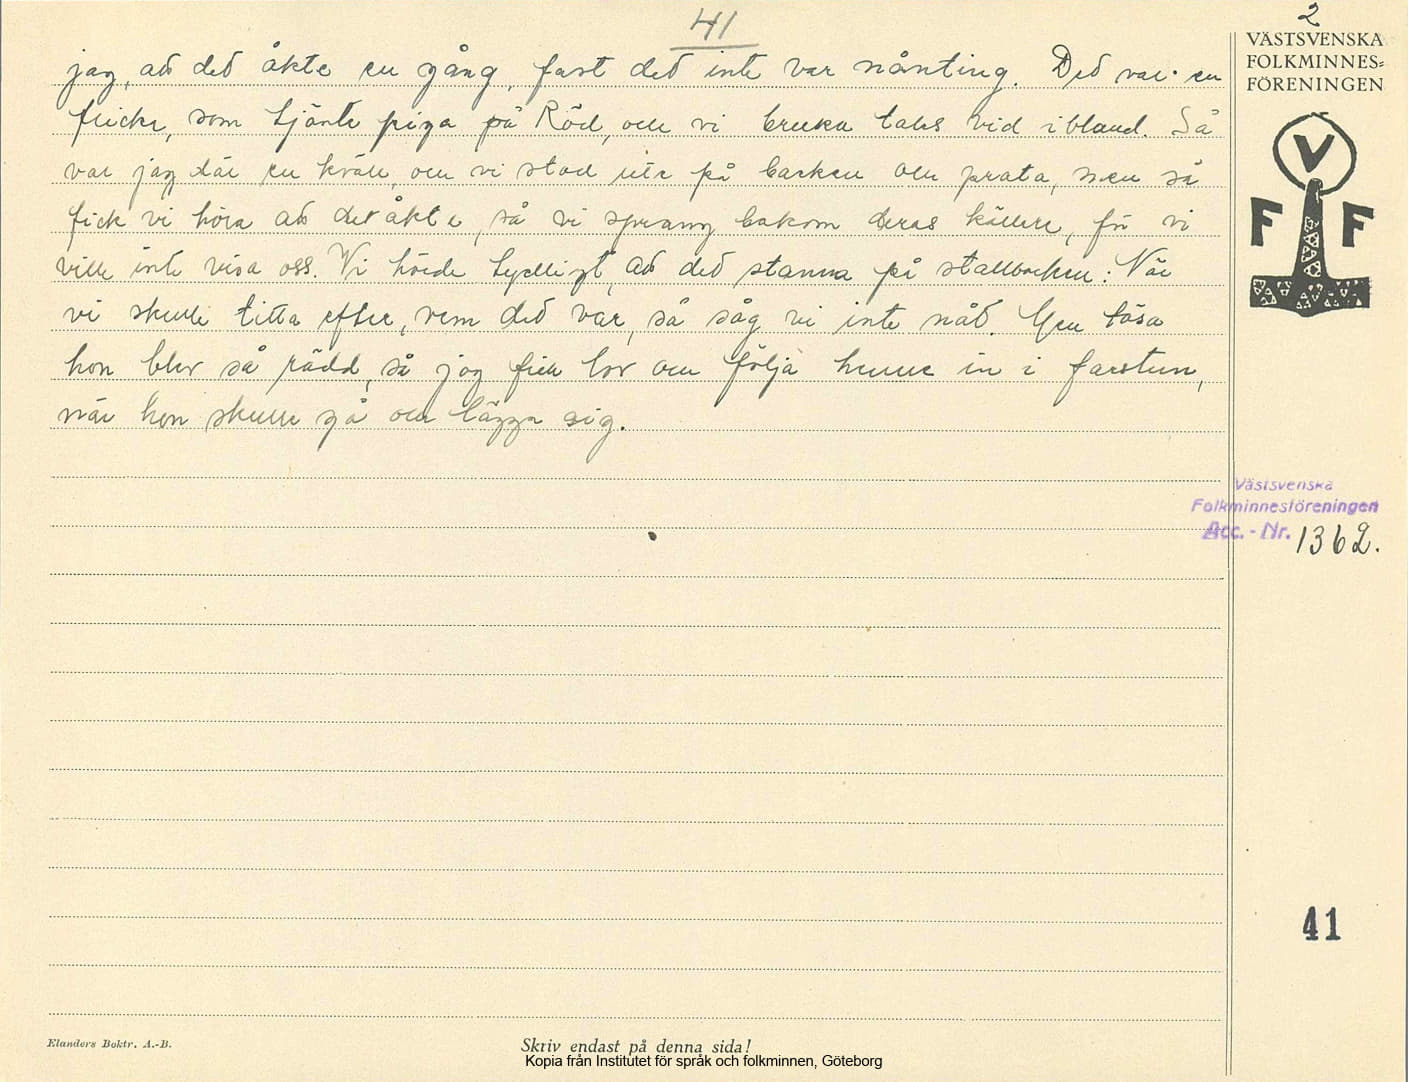 41
2
VÄSTSVENSKA
FOLKMINNES=
FÖRENINGEN
jag, att det åkte en gång, fast det inte var nånting. Det var en
flicka, som tjänte piga på Röd, och vi bruka talas vid ibland. Så
var jag där en kväll, och vi stod ute på backen och prata, men så
fick vi höra att det åkte, så vi sprang bakom deras källare, för vi
ville inte visa oss. Vi hörde tydligt, att det stanna på stallbacken. När
vi skulle titta efter, vem det var, så såg vi inte nåt. Men tösa
hon blev så rädd, så jag fick lov och följa henne in i farstun,
när hon skulle gå och lägga sig.
V
F F
Västsvenska
Folkminnesföreningen
Acc. - Nr. 1362.
41
Elanders Boktr. A.-B.
Skriv endast på denna sida!
Kopia från Institutet för språk och folkminnen, Göteborg